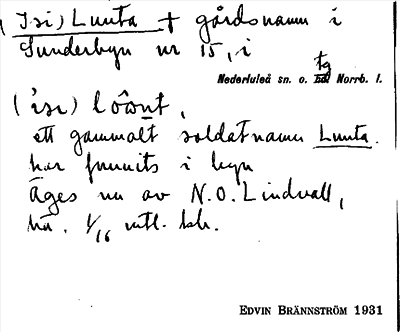 (Isi) Lunta † gårdsnamn i
Sunderbyn nr 15, i
tg
Nederluleå sn. o. hd. Norrb. l.
('isi) lôωnt,
ett gammalt soldatnamn Lunta.
har funnits i byn
Äges nu av N.O. Lindvall,
1/16 mtl. skr.
EDVIN BRÄNNSTRÖM 1931